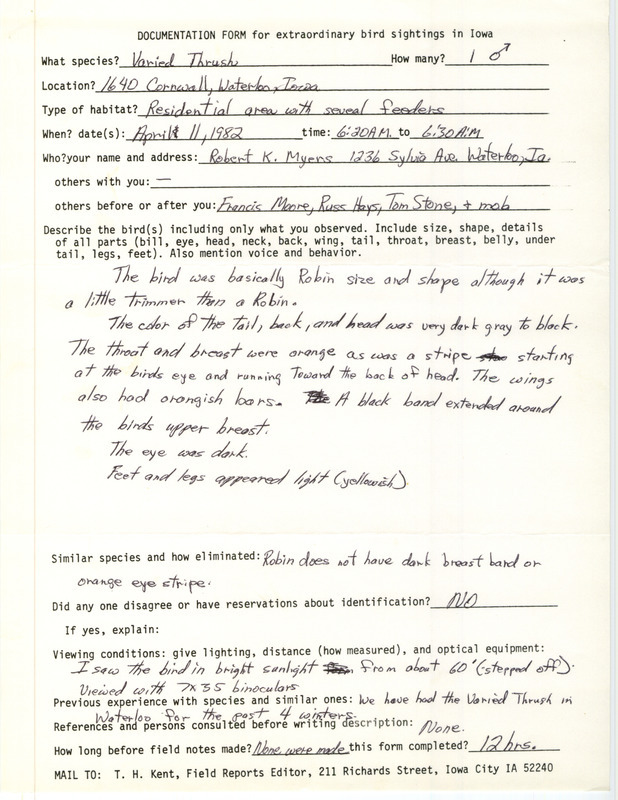 DOCUMENTATION FORM for extraordinary bird sightings in Iowa
What species? Varied Thrush How many? 1 ♂
Location? 1640 Cornwall, Waterloo, Iowa
Type of habitat? Residential area with seveal feeders
When? date(s): April 11, 1982 time: 6:20 A.M. to 6:30 A.M
Who?your name and address: Robert K. Myers 1236 Sylvia Ave. Waterloo, Ia.
others with you: —
others before or after you: Francis Moore, Russ Hays, Tom Stone, + mob
Describe the bird(s) including only what you observed. Include size, shape, details
of all parts (bill, eye, head, neck, back, wing, tail, throat, breast, belly, under
tail, legs, feet). Also mention voice and behavior.
The bird was basically Robin size and shape although it was
a little trimmer than a Robin.
The color of the tail, back, and head was very dark gray to black.
The throat and breast were orange as was a stripe starting
at the birds eye and running Toward the back of head. The wings
also had orangish bars. A black band extended around
the birds upper breast.
The eye was dark.
Feet and legs appeared light (yellowish)
Similar species and how eliminated: Robin does not have dark breast band or
orange eye stripe.
Did any one disagree or have reservations about identification? NO
If yes, explain:
Viewing conditions: give lighting, distance (how measured), and optical equipment:
I saw the bird in bright sunlight from about 60' (stepped off).
Viewed with 7x35 binoculars
Previous experience with species and similar ones: We have had the Varied Thrush in
Waterloo for the past 4 winters.
References and persons consulted before writing description: None.
How long before field notes made? None were made this form completed? 12 hrs.
MAIL TO: T. H. Kent, Field Reports Editor, 211 Richards Street, Iowa City IA 52240